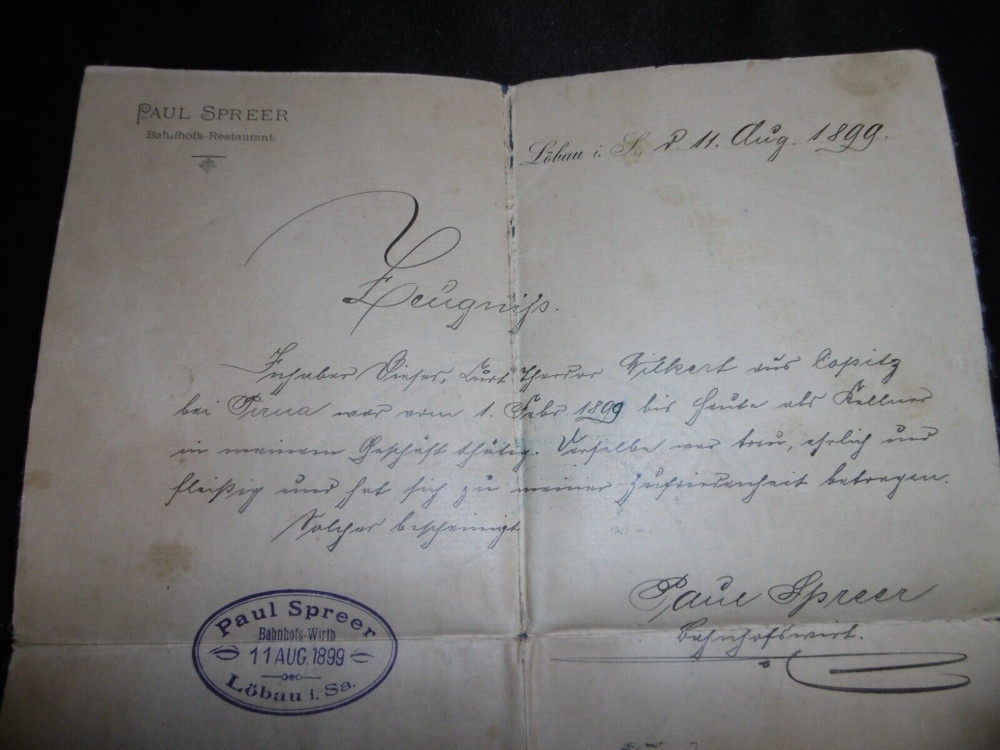 PAUL SPREER
Bahnhofs-Restaurant.
Löbau i. S., d 11. Aug. 1899.
Zeugniß.
Inhaber Dieses, Curt Theodor Gilkert aus Copitz
bei Pirna war vom 1. Febr 1899 bis heute als Kellner
in meinem Geschäft thätig. Derselbe war treu, ehrlich und
fleißig und hat sich zu meiner Zufriedenheit betragen.
Solches bescheinigt
Paul Spreer
Bahnhofswirt.
Paul Spreer
Bahnhofs-Wirth
11 AUG. 1899
Löbau i. Sa.